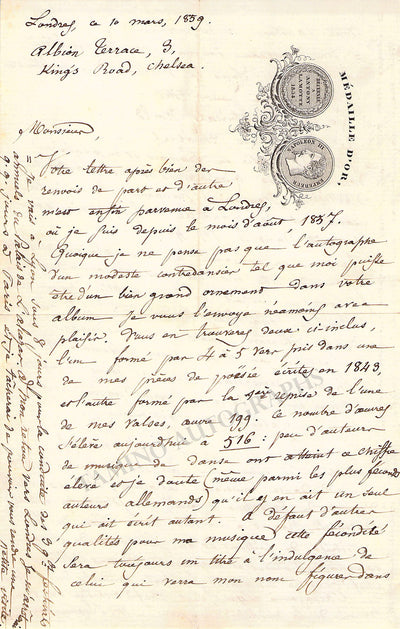 Londres, ce 10 mars, 1859.
Albion Terrace, 3,
King's Road, Chelsea.
MÉDAILLE D'OR,
NAPOLEON III
EMPEREUR
Monsieur,
Votre lettre après bien des
renvois de part et d'autre
m'est enfin parvenue à Londres,
où je suis depuis le mois d'août, 1857.
Quoique je ne pense pas que l'autographe
d'un modeste contredansier tel que moi puisse
être d'un bien grand ornement dans votre
album je vous l'envoye néanmóns avec
plaisir. Vous en trouverez deux ci-inclus,
l'un formé par 4 à 5 vers pris dans une
de mes pièces de poésie écrites en 1843,
et l'autre formé par la 1ère reprise de l'une
de mes valses, œuvre 199. Le nombre d'œuvres
s'élève aujourd'hui à 516 : peu d'auteurs
de musique de danse ont atteint ce chiffre
élevé et je doute (même parmi les plus féconds
auteurs allemands) qu'il y en ait un seul
qui ait écrit autant. A défaut d'autres
qualités pour ma musique, cette fécondité
sera toujours un titre à l'indulgence de
celui qui verra mon nom figurer dans
Je vais à Lyon dans 8 jours pour la conduite des 3 gds festivals
annuels du Palais de l'alcazar. A mon retour vers Londres je
q.q. jours à Paris et je tacherai de pouvoir vous rendre
visite
TAMINO AUTOGRAPHS